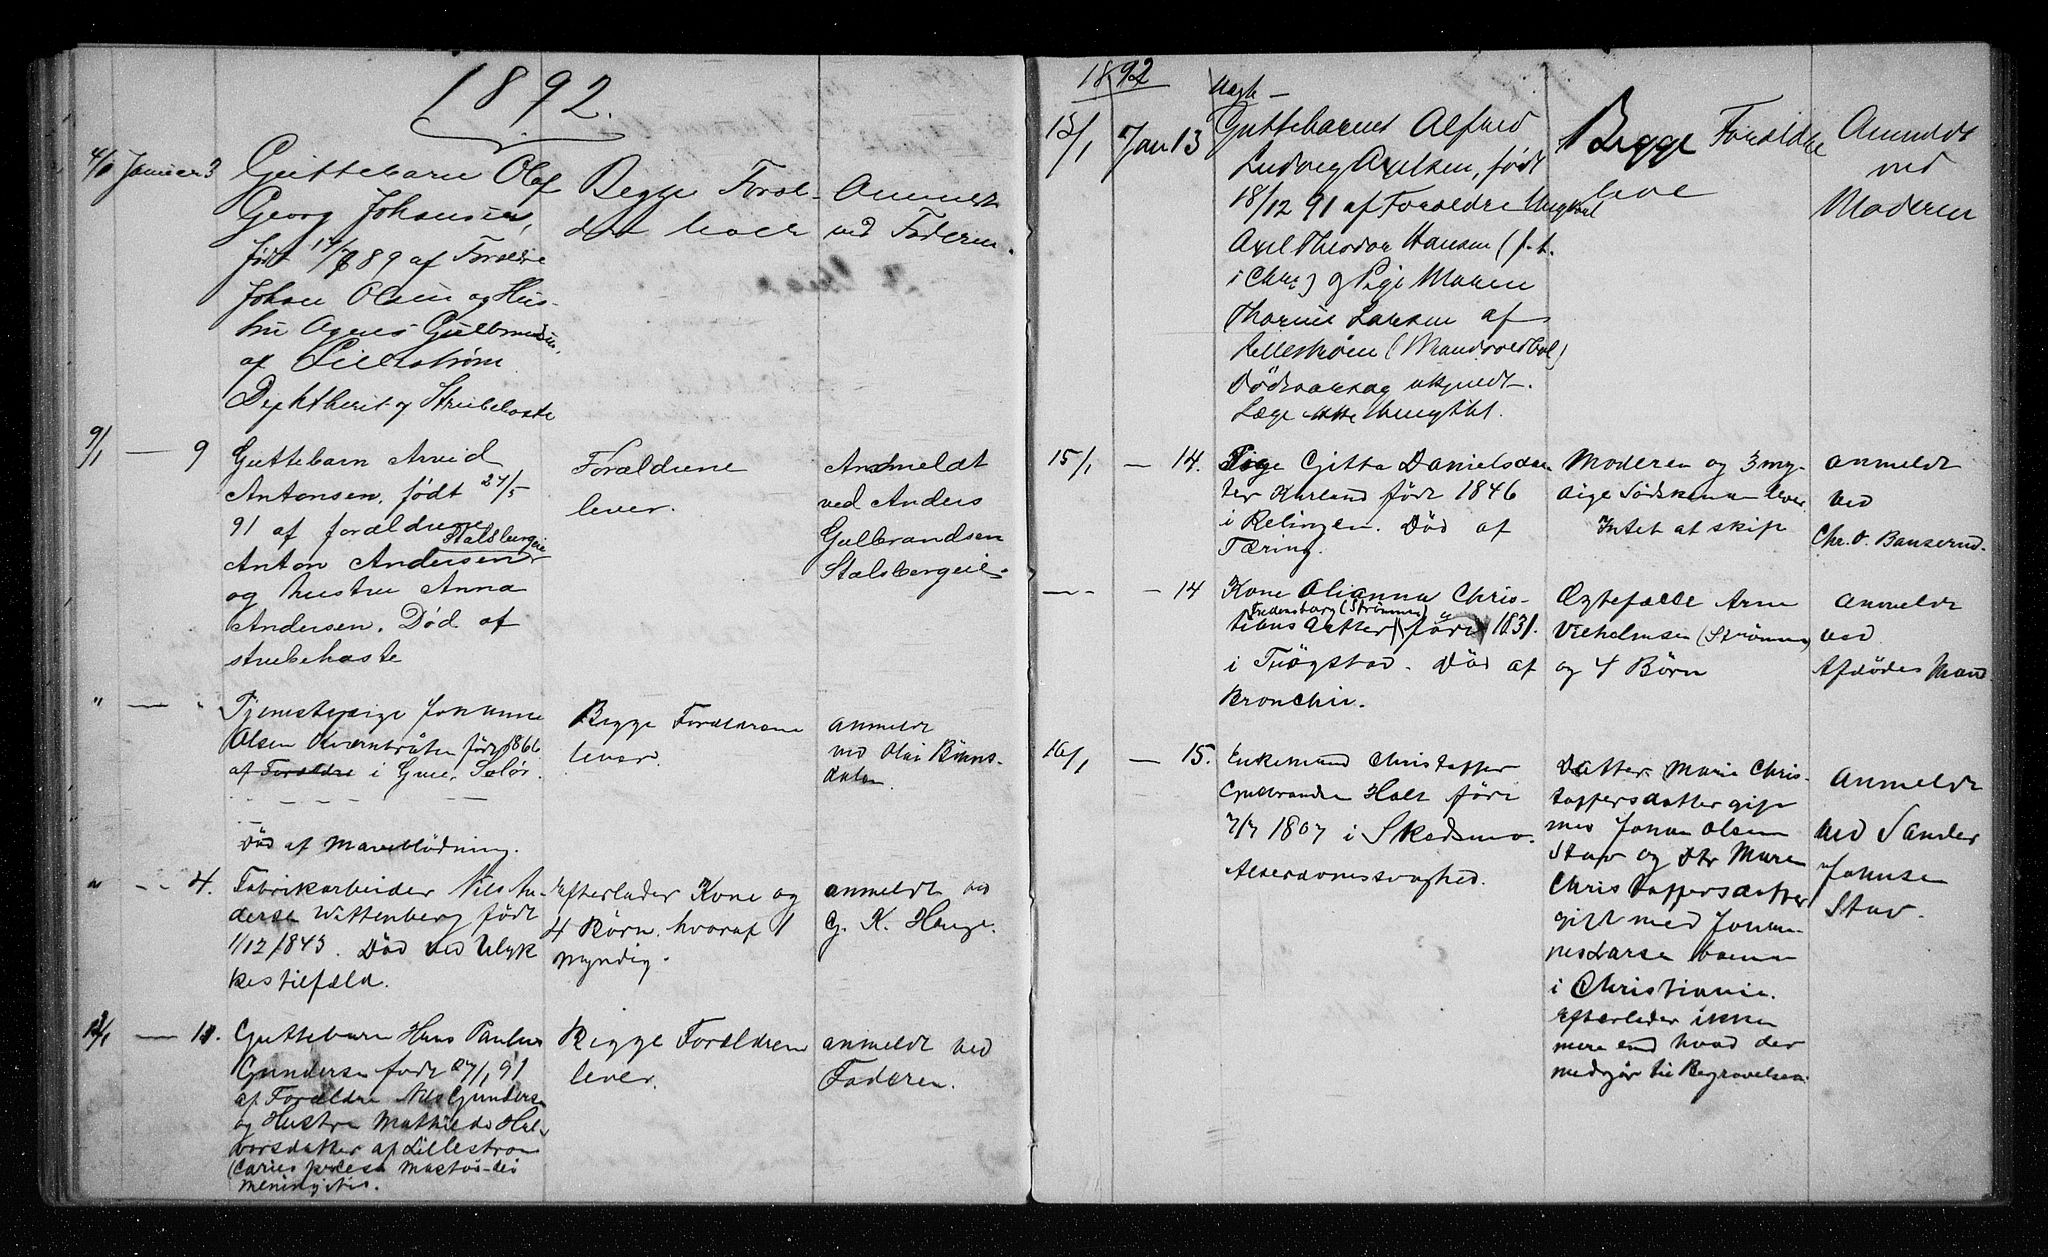 1892.
4/1 Januar 3 Guttebarn Olaf
Georg Johansen,
født 17/7 89 af Forældre
Johan Olsen og Hus-
tru Agnes Gulbrandsen,
af Lillestrøm
Dephtherit og Strubehoste
Begge Foræl-
dre
Anmeldt
ved Faderen.
9/1 — 9 Guttebarn Arvid
Antonsen, født 24/5
91 af forældrene
Stalsbergeie
Anton Andersen
og hustru Anna
Andersen. Død af
strubehoste
Forældrene
lever.
Anmeldt
ved Anders
Gulbrandsen
Stalsbergeie
" — " Tjenestepige Johanne
Olsen Kværnbråten født 1866
af Forældre i Grue, Solør.
Død af Maveblödning.
Begge Forældrene
lever.
anmeldt
ved Olai Böhns-
dalen
" — 4. Fabrikarbeider Nils An-
dersen Wittenberg født
1/12 1843. Död ved Ulyk
kestilfæld.
Efterlader Kone og
4 Börn, hvoraf 1
myndig.
anmeldt ved
G. K. Hauge.
12/1 — 11. Guttebarn Hans Paulus
Gundersen født 27/1 91
af Forældre Nils Gundersen
og Hustru Mathilde Hal-
vorsdatter af Lillestrøm
(Caries Mastoi-dei
meningitis.
Begge Forældrene
lever.
anmeldt ved
Faderen.
1892
15/1 Jan 13 Uægte
Guttebarnet Alfred
Ludvig Axelsen, født
18/12 91 af Forældre Ungkarl
Axel Theodor Hansen (f. t.
i Chra) og Pige Maren
Thorine Larsen af
Lillestrøm (Mandsvoldbol)
Dödsaarsag ukjendt.
Læge ikke benyttet.
Begge Forældre
leve
Anmeldt
ved
Moderen
15/1 — 14. Pige Gitta Danielsdat
ter Kurland född 1846
i Relingen. Död af
Tæring.
Moderen og 3 my-
dige Södskende lever
Intet at skift
anmeldt
ved
Chr. O. Banserud.
— — 14 Kone Olianna Chris-
Fredensborg (Strömmen)
tiansdatter född 1831.
i Trögstad. Död af
Bronchit.
Egtefælle Arne
Vilhelmsen (Strömmen)
og 4 Börn
anmeldt
ved
Afdödes Mand
16/1 — 15. Enkemand Christoffer
Gulbrandsen Holt född
7/7 1807 i Skedsmo.
Alderdomssvaghed.
Datter Marie Chris-
toffersdatter gift
med Johan Olsen
Stav og Dtr Maren
Christoffersdatter
gift med Johan-
nes Larsen
i Christiania.
Efterlader ikke
mere end hvad der
medgår til Begravelsen.
Anmeldt
ved Sander
Johnsen
Stav.